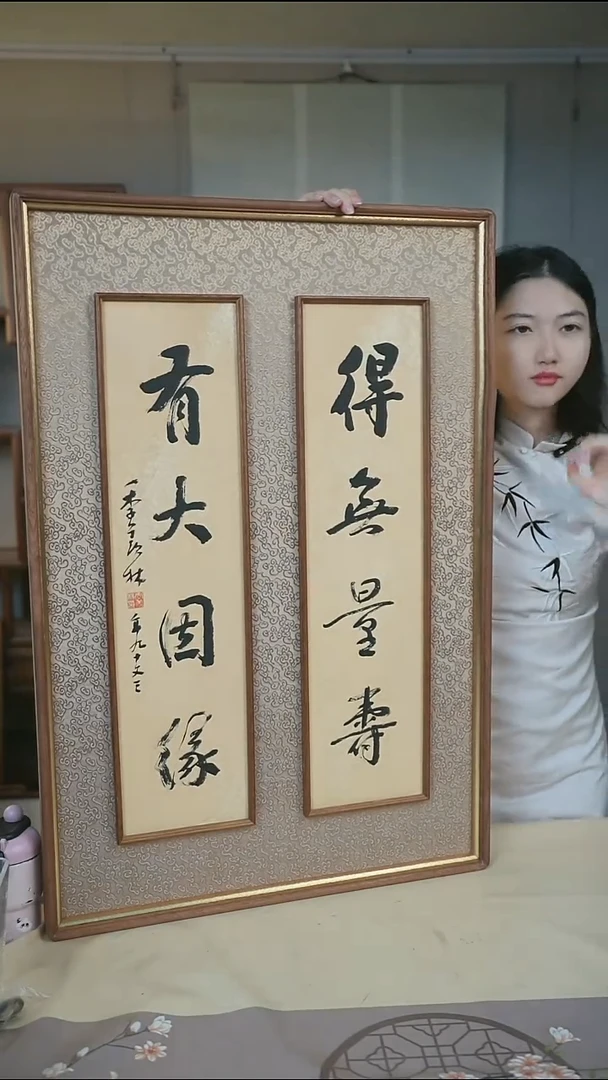 得無量壽
有大因緣
季羡林
年九十又三